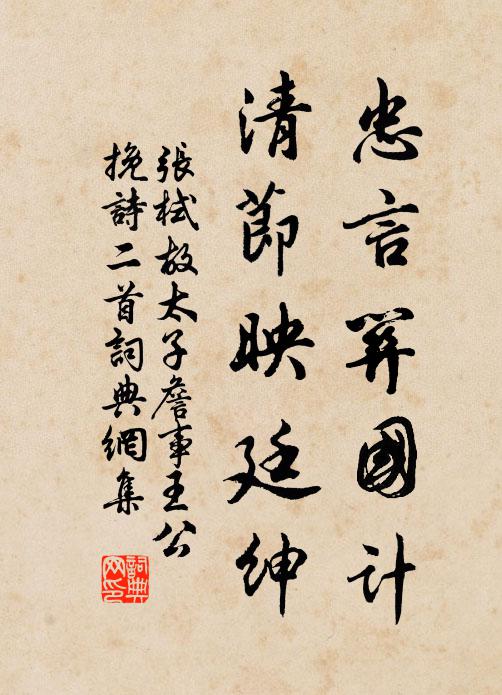 忠言關國計
清節映廷紳
張栻故太子詹事王公
挽詩二首詞典網集
詞典
网印